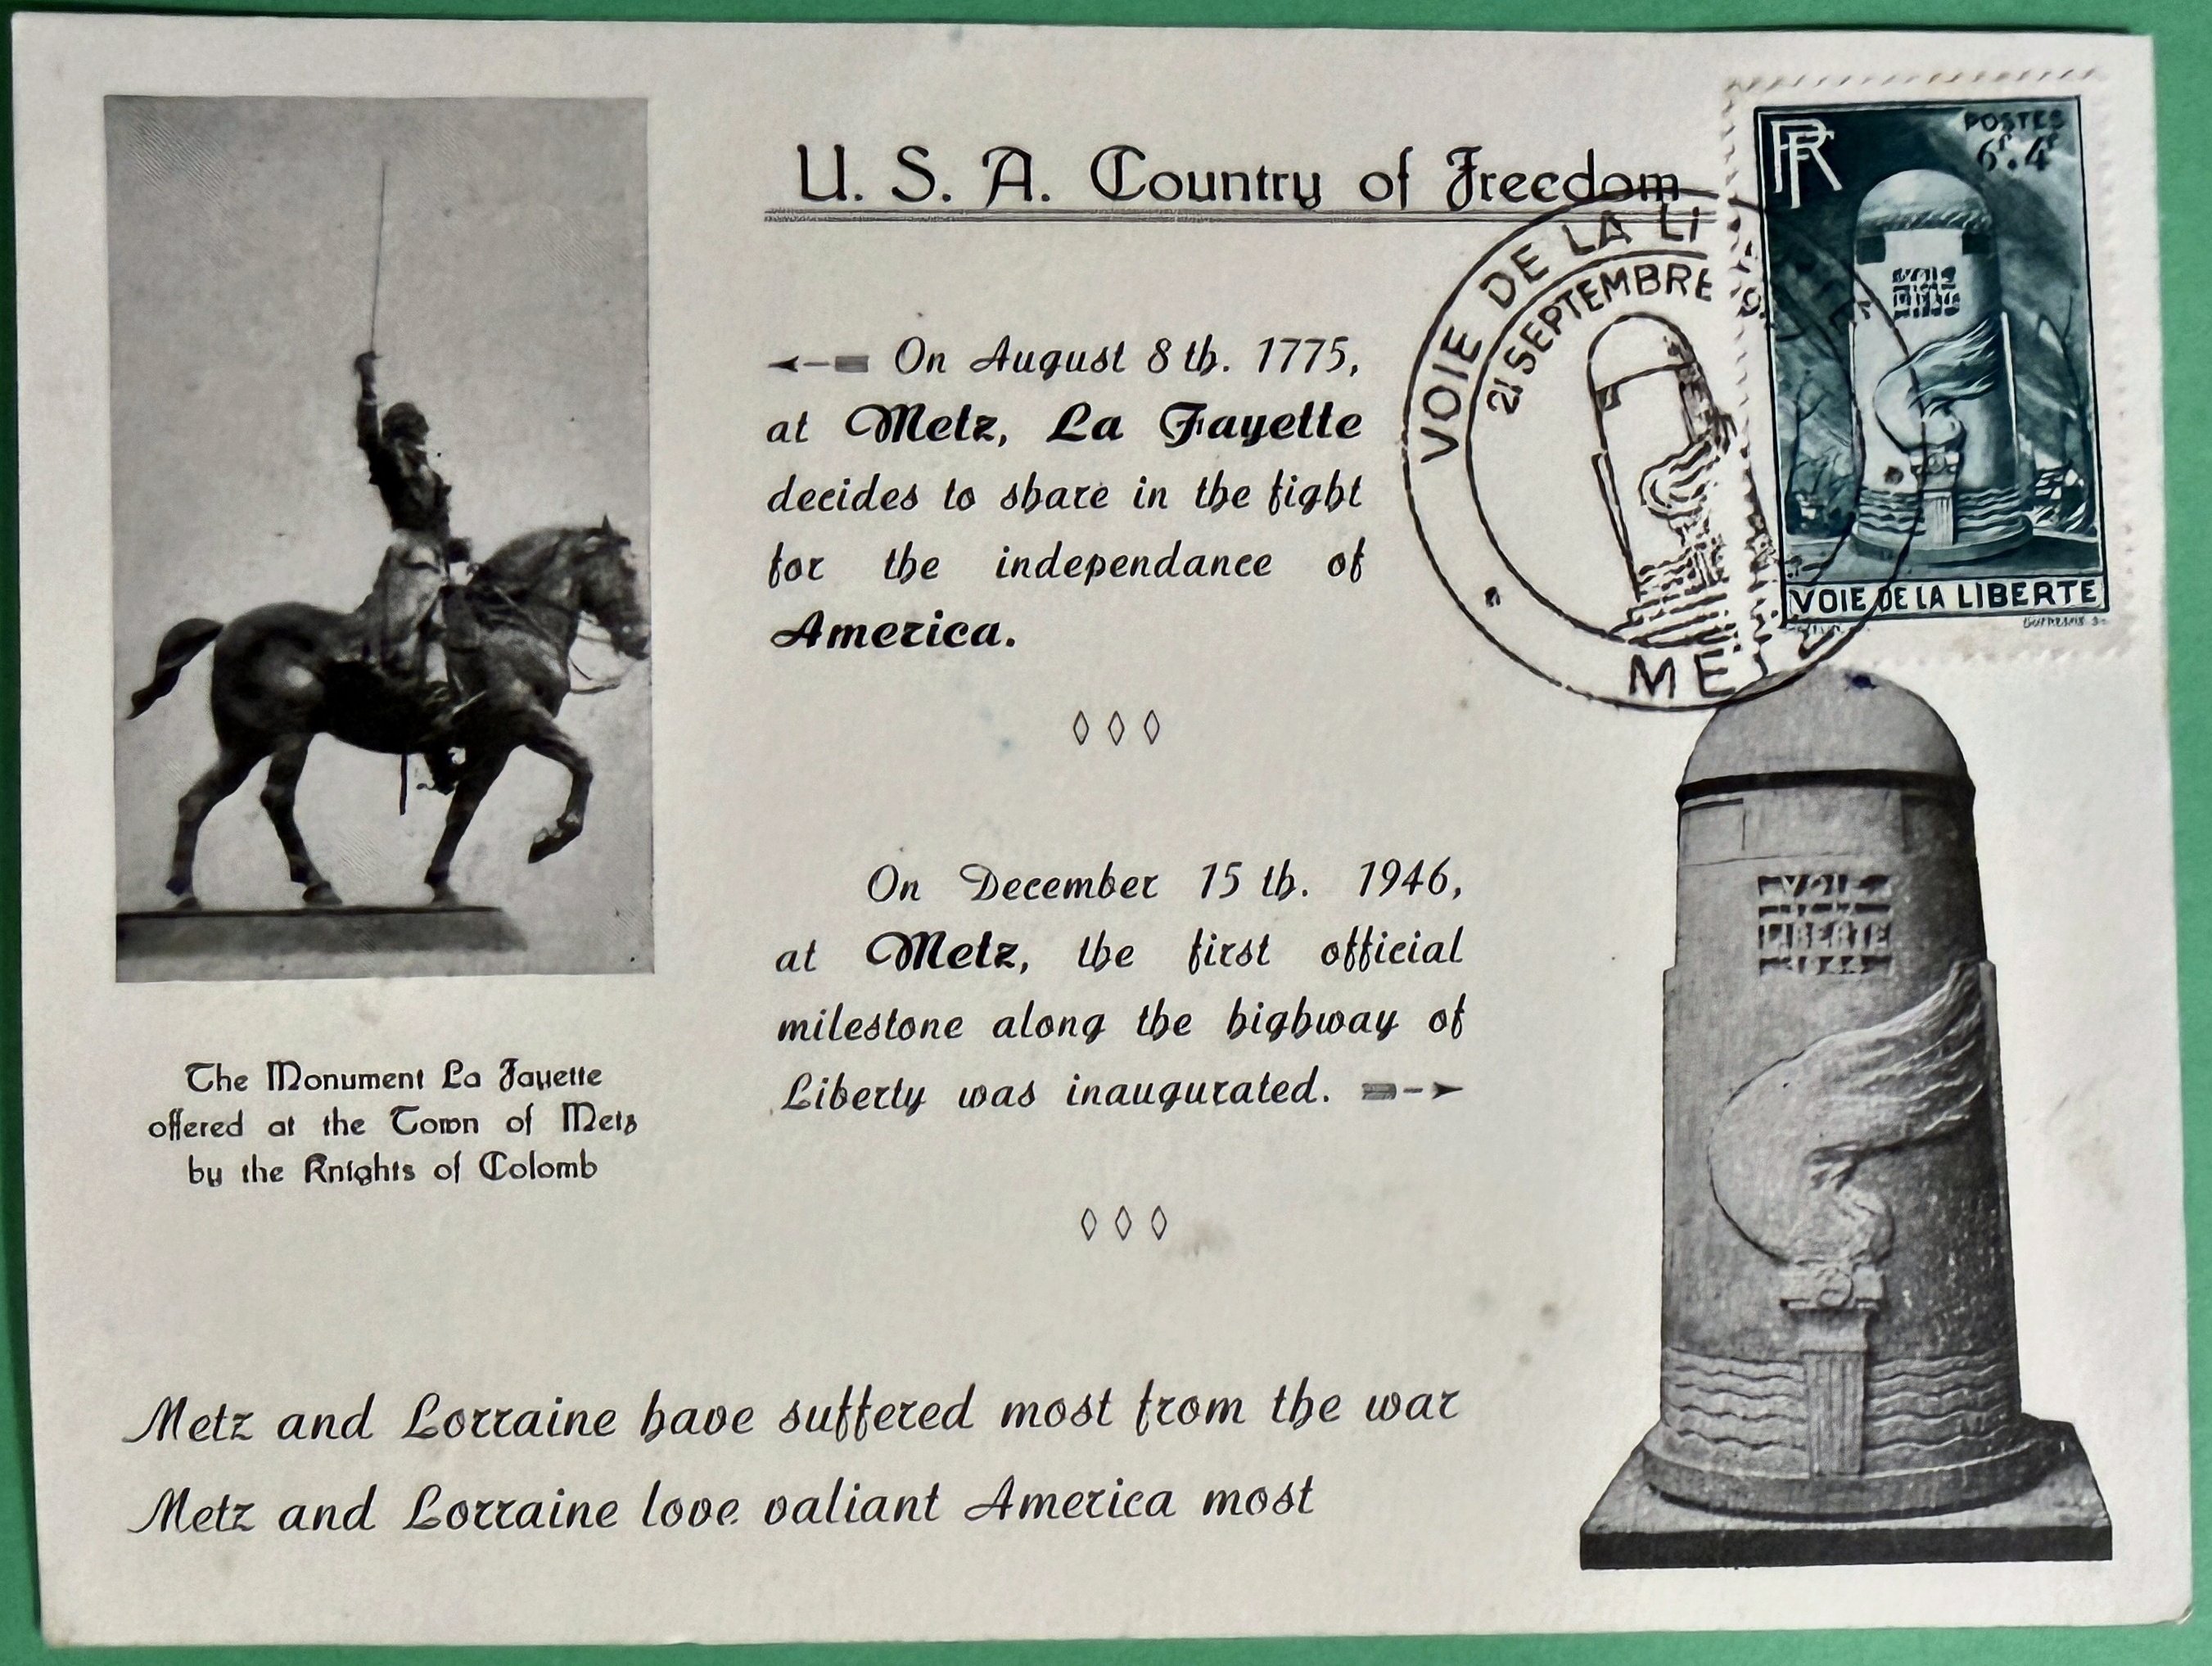 U. S. A. Country of Freedom
On August 8 th. 1775,
at Metz, La Fayette
decides to share in the fight
for the independance of
America.
On December 15 th. 1946,
at Metz, the first official
milestone along the highway of
Liberty was inaugurated.
The Monument La Fayette
offered at the Town of Metz
by the Knights of Colomb
Metz and Lorraine have suffered most from the war
Metz and Lorraine love valiant America most
RF
POSTES
6f.4f
VOIE
LIBERTE
VOIE DE LA LIBERTE
VOIE DE LA LI
21 SEPTEMBRE
VOIE
LIBERTE